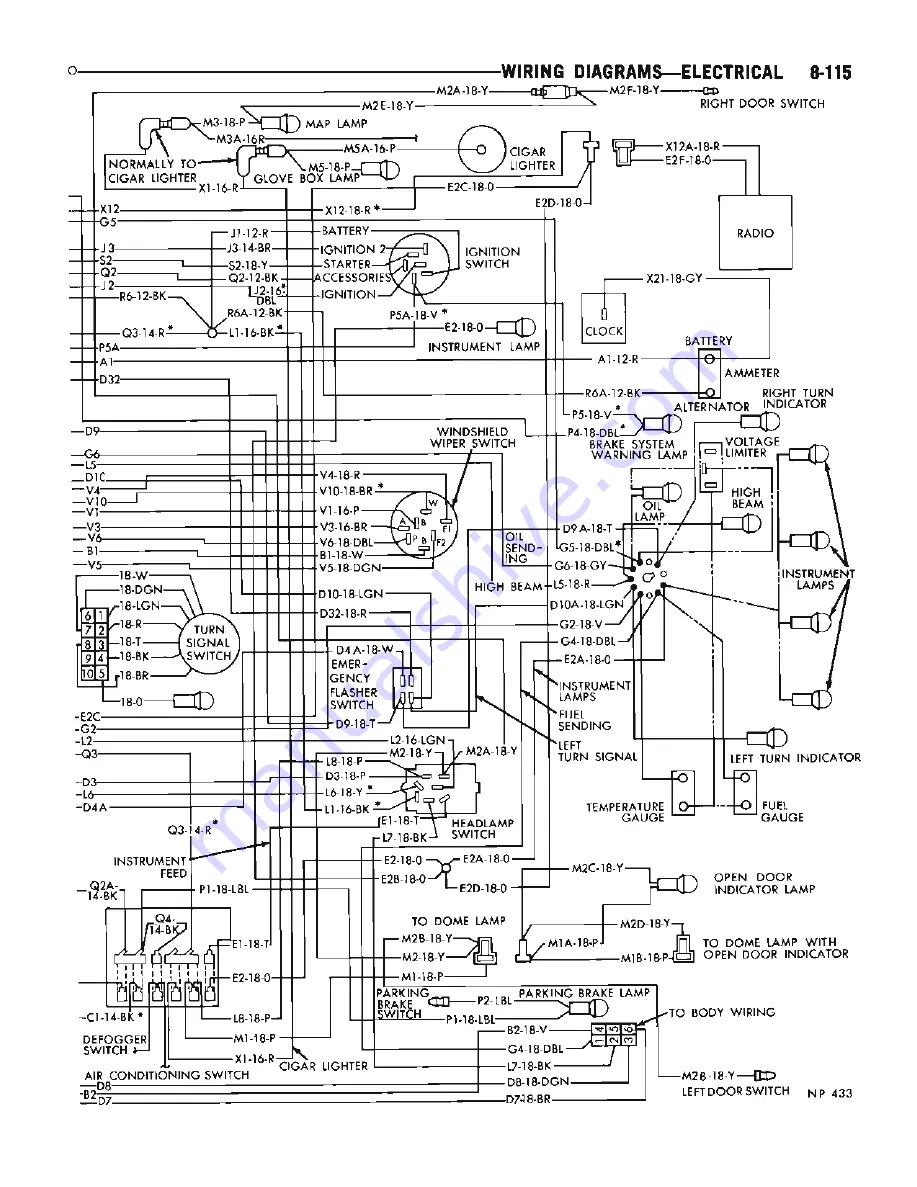 WIRING DIAGRAMS—ELECTRICAL 8-115
M2A-18-Y
M2F-18-Y
RIGHT DOOR SWITCH
M2E-18-Y
M3-18-P
MAP LAMP
M3A-16R
M5A-16-P
CIGAR
LIGHTER
X12A-18-R
E2F-18-0
NORMALLY TO
CIGAR LIGHTER
M5-18-P
GLOVE BOX LAMP
X1-16-R
E2C-18-0
E2D-18-0
X12
X12-18-R*
G5
RADIO
J1-12-R
BATTERY
J3
J3-14-BR
IGNITION 2
IGNITION
SWITCH
S2
S2-18-Y
STARTER
Q2
Q2-12-BK
ACCESSORIES
X21-18-GY
J2
J2-16*
DBL
IGNITION
R6-12-BK
R6A-12-BK
P5A-18-V*
CLOCK
Q3-14-R*
L1-16-BK*
E2-18-0
INSTRUMENT LAMP
BATTERY
P5A
A1
A1-12-R
AMMETER
D32
R6A-12-BK
RIGHT TURN
INDICATOR
ALTERNATOR
P5-18-V*
P4-18-DBL*
BRAKE SYSTEM
WARNING LAMP
D9
WINDSHIELD
WIPER SWITCH
VOLTAGE
LIMITER
G6
L5
D10
V4-18-R
V4
V10-18-BR*
V10
W
HIGH
BEAM
OIL
LAMP
V1
V1-16-P
B
V3
V3-16-BR
A
F1
D9A-18-T
V6
V6-18-DBL
P
B
F2
OIL
SEND-
ING
G5-18-DBL*
B1
B1-18-W
G6-18-GY
V5
V5-18-DGN
INSTRUMENT
LAMPS
18-W
18-DGN
HIGH BEAM
L5-18-R
18-LGN
D10-18-LGN
D10A-18-LGN
6 1
7 2
8 3
9 4
10 5
18-R
D32-18-R
G2-18-V
18-T
TURN
SIGNAL
SWITCH
G4-18-DBL
18-BK
D4A-18-W
E2A-18-0
18-BR
EMER-
GENCY
FLASHER
SWITCH
INSTRUMENT
LAMPS
18-0
D9-18-T
FUEL
SENDING
E2C
G2
L2
L2-16-LGN
M2-18-Y
M2A-18-Y
LEFT
TURN SIGNAL
LEFT TURN INDICATOR
Q3
L8-18-P
D3
D3-18-P
L6
L6-18-Y*
D4A
L1-16-BK*
TEMPERATURE
GAUGE
FUEL
GAUGE
E1-18-T
HEADLAMP
SWITCH
Q3-14-R*
L7-18-BK
INSTRUMENT
FEED
E2-18-0
E2A-18-0
M2C-18-Y
OPEN DOOR
INDICATOR LAMP
E2B-18-0
E2D-18-0
Q2A-
14-BK
P1-18-LBL
Q4-
14-BK
TO DOME LAMP
M2D-18-Y
M2B-18-Y
E1-18-T
M2-18-Y
M1A-18-P
TO DOME LAMP WITH
OPEN DOOR INDICATOR
M1B-18-P
E2-18-0
M1-18-P
PARKING
BRAKE
SWITCH
P2-LBL
PARKING BRAKE LAMP
C1-14-BK*
L8-18-P
P1-18-LBL
TO BODY WIRING
B2-18-V
4 5 6
1 2 3
DEFOGGER
SWITCH
M1-18-P
G4-18-DBL
X1-16-R
CIGAR LIGHTER
L7-18-BK
AIR CONDITIONING SWITCH
D8
D8-18-DGN
M2B-18-Y
B2
D7
D7-18-BR
LEFT DOOR SWITCH
NP 433
manualshive.com